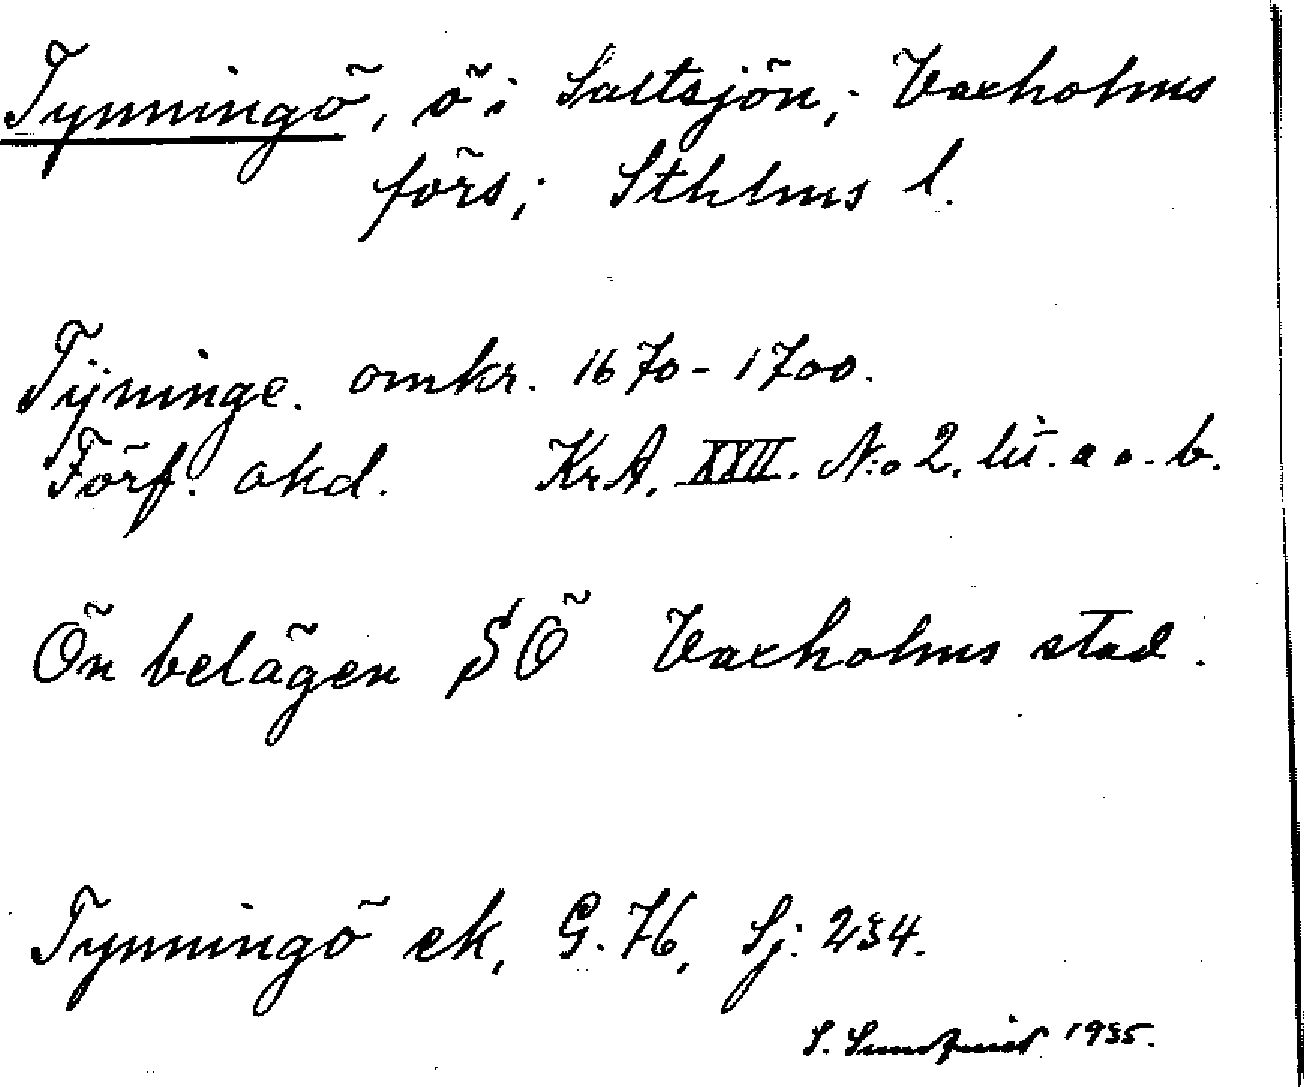 Tynningö, ö i Saltsjön, Vaxholms
förs; Sthlms l.
Tijninge. omkr. 1670-1700.
Förf. okd. KrA. XXII. N:o 2. litt. a o. b.
Ön belägen SÖ Vaxholms stad.
Tynningö ek, G. 76, Sj: 234.
S. Sundquist 1935.